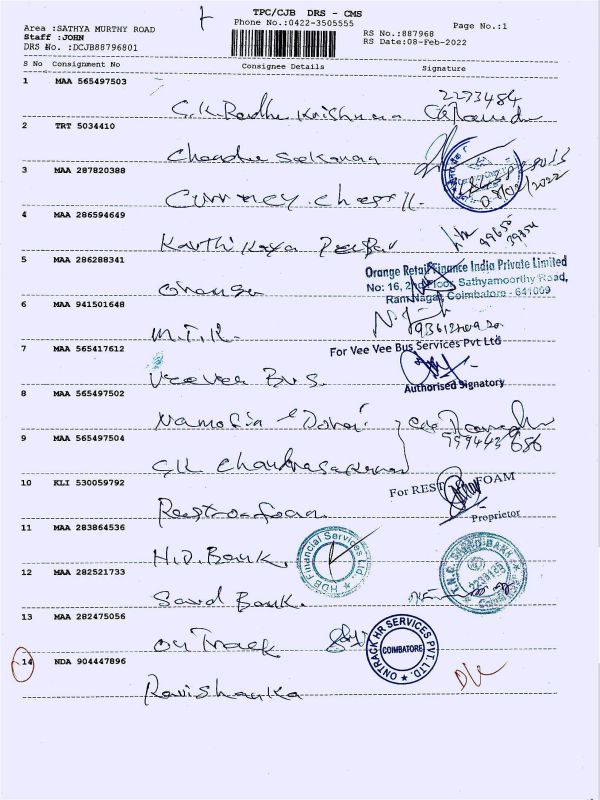 TPC/CJB DRS - CMS
Phone No.:0422-3505555
Page No.:1
Area :SATHYA MURTHY ROAD
Staff :JOHN
DRS No. :DCJB88796801
RS No.:887968
RS Date:08-Feb-2022
S No Consignment No Consignee Details Signature
1 MAA 565497503
2273484
S.K. Radhe Krishna
2 TRT 5034410
Chandra Sekaran
3 MAA 287820388
Currency Chest
4 MAA 286594649
Karthikeya
5 MAA 286288341
Orange Retail Finance India Private Limited
No: 16, 2nd Floor, Sathyamoorthy Road,
Ram Nagar, Coimbatore - 641009
6 MAA 941501648
M.T.R.
For Vee Vee Bus Services Pvt Ltd
7 MAA 565417612
Vee Vee Bus.
Authorised Signatory
8 MAA 565497502
9 MAA 565497504
S.K Chandrasekaran
10 KLI 530059792
For REST FOAM
Rest-o-foam
Proprietor
11 MAA 283864536
H.D. Bank.
HDB Financial Services Ltd.
12 MAA 282521733
Bank.
13 MAA 282475056
On Track
ONTRACK HR SERVICES PVT. LTD.
COIMBATORE
14 NDA 904447896
Ravishanka